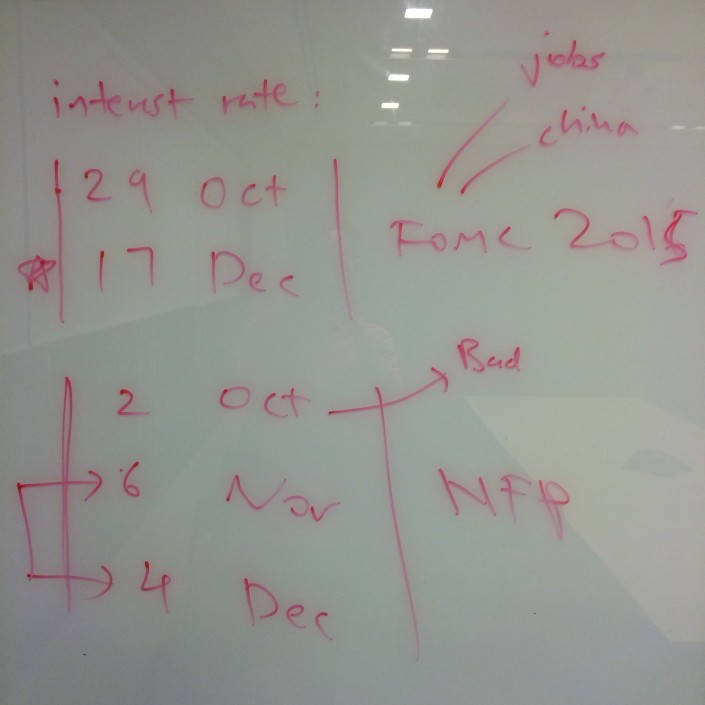 interest rate:
jobs
china
29 Oct
17 Dec
FOMC 2015
2 Oct
Bad
6 Nov
NFP
4 Dec